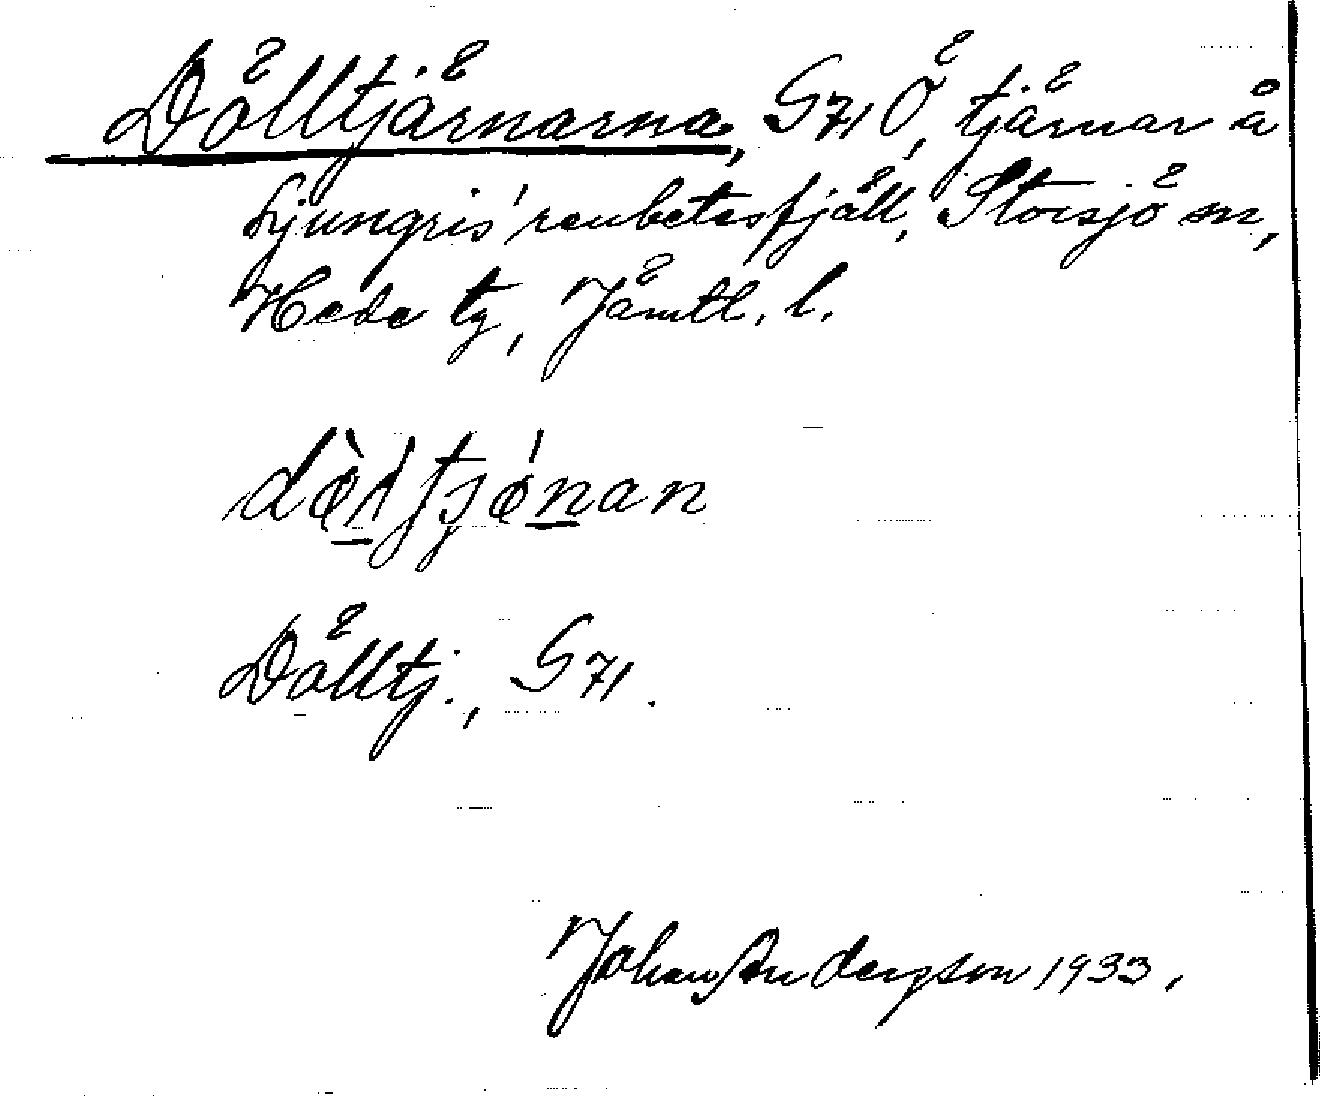 Dölltjärnarna, G71Ö, tjärnar å
Ljungris' renbetesfjäll, Storsjö sn,
Hede tg, Jämtl. l.
Dölltj., G71.
Johan Andersson 1933.